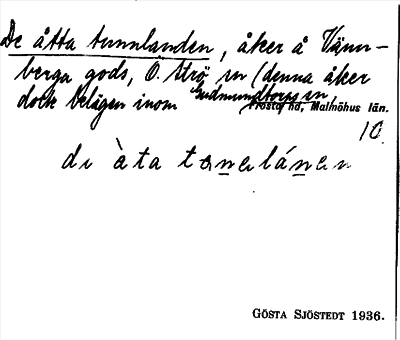 De åtta tunnlanden, åker å Vänn-
berga gods, Ö. Strö sn (denna åker
dock belägen inom Gudmundtorps sn,
Frosta hd, Malmöhus län.
10.
di àta tɷnelánen
GÖSTA SJÖSTEDT 1936.